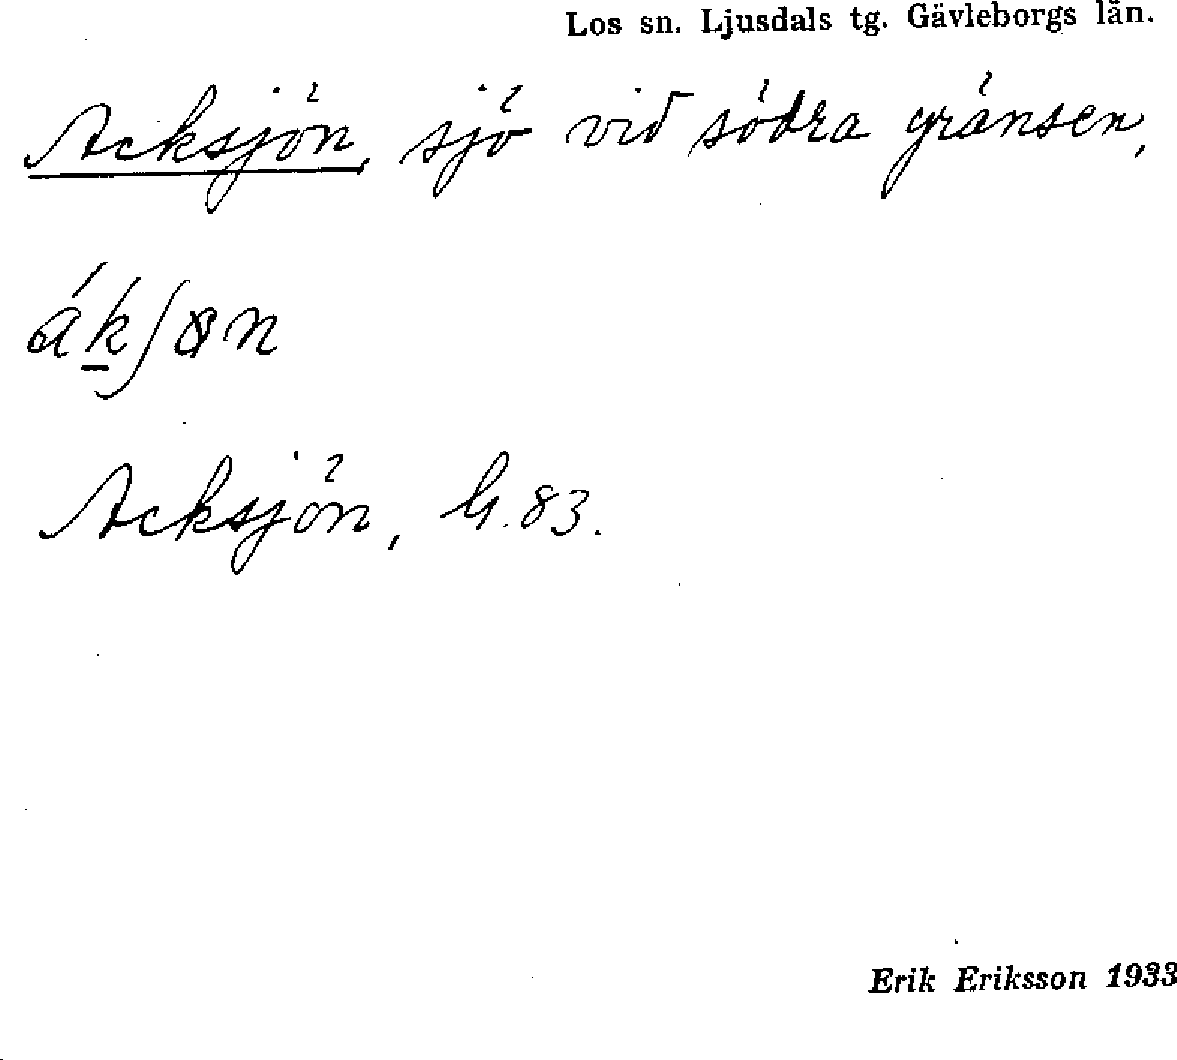 Los sn. Ljusdals tg. Gävleborgs län.
Acksjön, sjö vid södra gränsen,
Acksjön, G. 83.
Erik Eriksson 1933